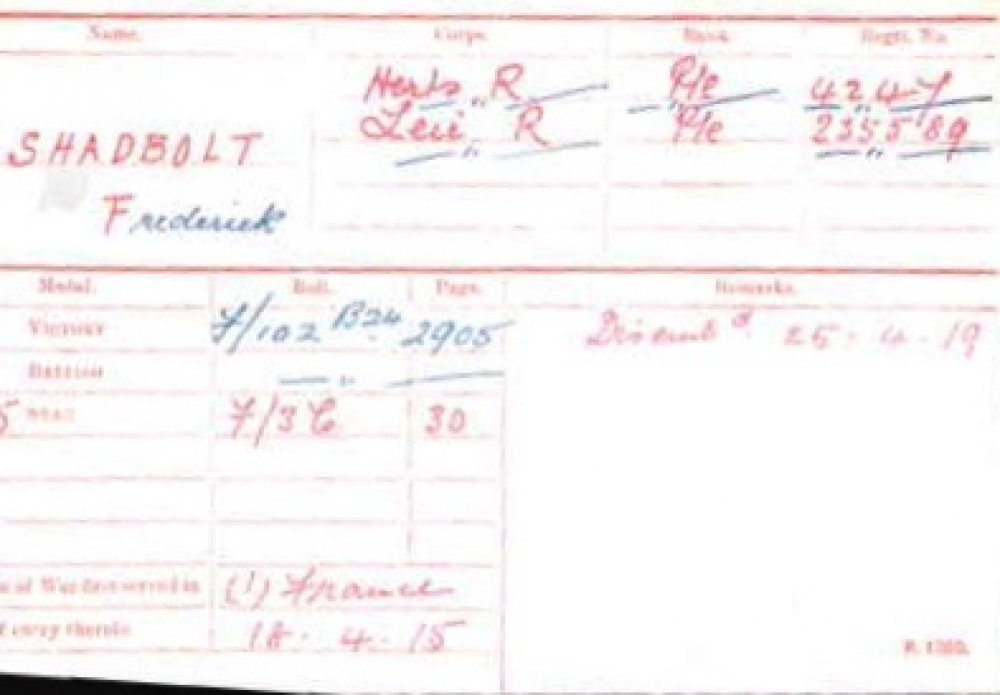 Name. Corps. Rank. Regtl. No.
Herts. R Pte 4247
SHADBOLT Leic. R Pte 235589
Frederick
Medal. Roll. Page. Remarks.
VICTORY F/102 B24 2905 Disemb d. 25. 4. 19
BRITISH — " —
5 STAR F/3 C 30
of War first served in (1) France
f entry therein 18. 4. 15